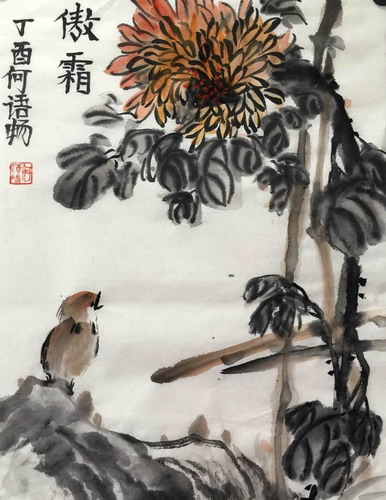 傲霜
丁酉何语畅